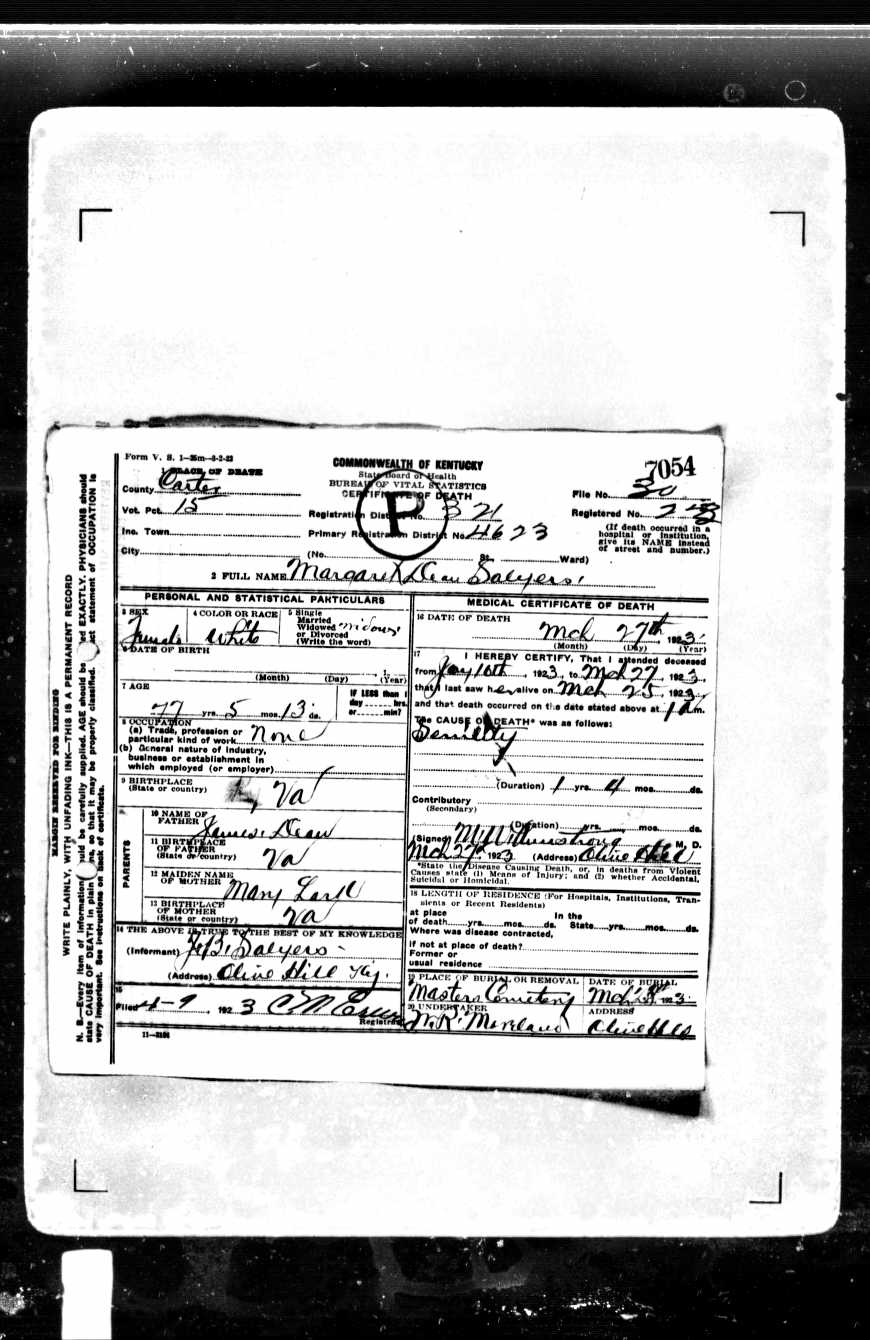 Form V. S. 1—35m—8-2-22
7054
1 PLACE OF DEATH
COMMONWEALTH OF KENTUCKY
State Board of Health
BUREAU OF VITAL STATISTICS
CERTIFICATE OF DEATH
P
County Carter
File No. 30
Vot. Pct. 15
Registration District No. 321
Registered No.
Inc. Town
Primary Registration District No. 4623
(If death occurred in a hospital or institution, give its NAME instead of street and number.)
City
(No. St. Ward)
2 FULL NAME Margaret Dean Salyers
PERSONAL AND STATISTICAL PARTICULARS
3 SEX Female
4 COLOR OR RACE White
5 Single Married Widowed or Divorced (Write the word) Widow
6 DATE OF BIRTH
(Month) (Day) , 1 (Year)
7 AGE
77 yrs. 5 mos. 13 ds.
IF LESS than 1 day hrs. or min?
8 OCCUPATION
(a) Trade, profession or particular kind of work None
(b) General nature of industry, business or establishment in which employed (or employer)
9 BIRTHPLACE (State or country) Va
PARENTS
10 NAME OF FATHER James Dean
11 BIRTHPLACE OF FATHER (State or country) Va
12 MAIDEN NAME OF MOTHER Mary
13 BIRTHPLACE OF MOTHER (State or country) Va
14 THE ABOVE IS TRUE TO THE BEST OF MY KNOWLEDGE
(Informant) J. B. Salyers
(Address) Olive Hill Ky.
15
Filed 4-9, 1923
Registrar
11—3196
MEDICAL CERTIFICATE OF DEATH
16 DATE OF DEATH
Mch 27th, 1923
(Month) (Day) (Year)
17 I HEREBY CERTIFY, That I attended deceased
from 10th, 1923, to Mch 27, 1923,
that I last saw her alive on Mch 25, 1923,
and that death occurred on the date stated above at 1 a.m.
The CAUSE OF DEATH* was as follows:
Senility
(Duration) 1 yrs. 4 mos. ds.
Contributory
(Secondary)
(Duration) yrs. mos. ds.
(Signed) Armstrong M. D.
Mch 27, 1923 (Address) Olive Hill
*State the Disease Causing Death, or, in deaths from Violent Causes state (1) Means of Injury; and (2) whether Accidental, Suicidal or Homicidal.
18 LENGTH OF RESIDENCE (For Hospitals, Institutions, Transients or Recent Residents)
at place of death yrs. mos. ds. In the State yrs. mos. ds.
Where was disease contracted,
If not at place of death?
Former or usual residence
19 PLACE OF BURIAL OR REMOVAL
DATE OF BURIAL
Masters Cemetery
Mch 1923
20 UNDERTAKER
ADDRESS
Moreland
Olive Hill
MARGIN RESERVED FOR BINDING
WRITE PLAINLY, WITH UNFADING INK—THIS IS A PERMANENT RECORD
N. B.—Every item of information should be carefully supplied. AGE should be stated EXACTLY. PHYSICIANS should
state CAUSE OF DEATH in plain terms, so that it may be properly classified. Exact statement of OCCUPATION is
very important. See instructions on back of certificate.